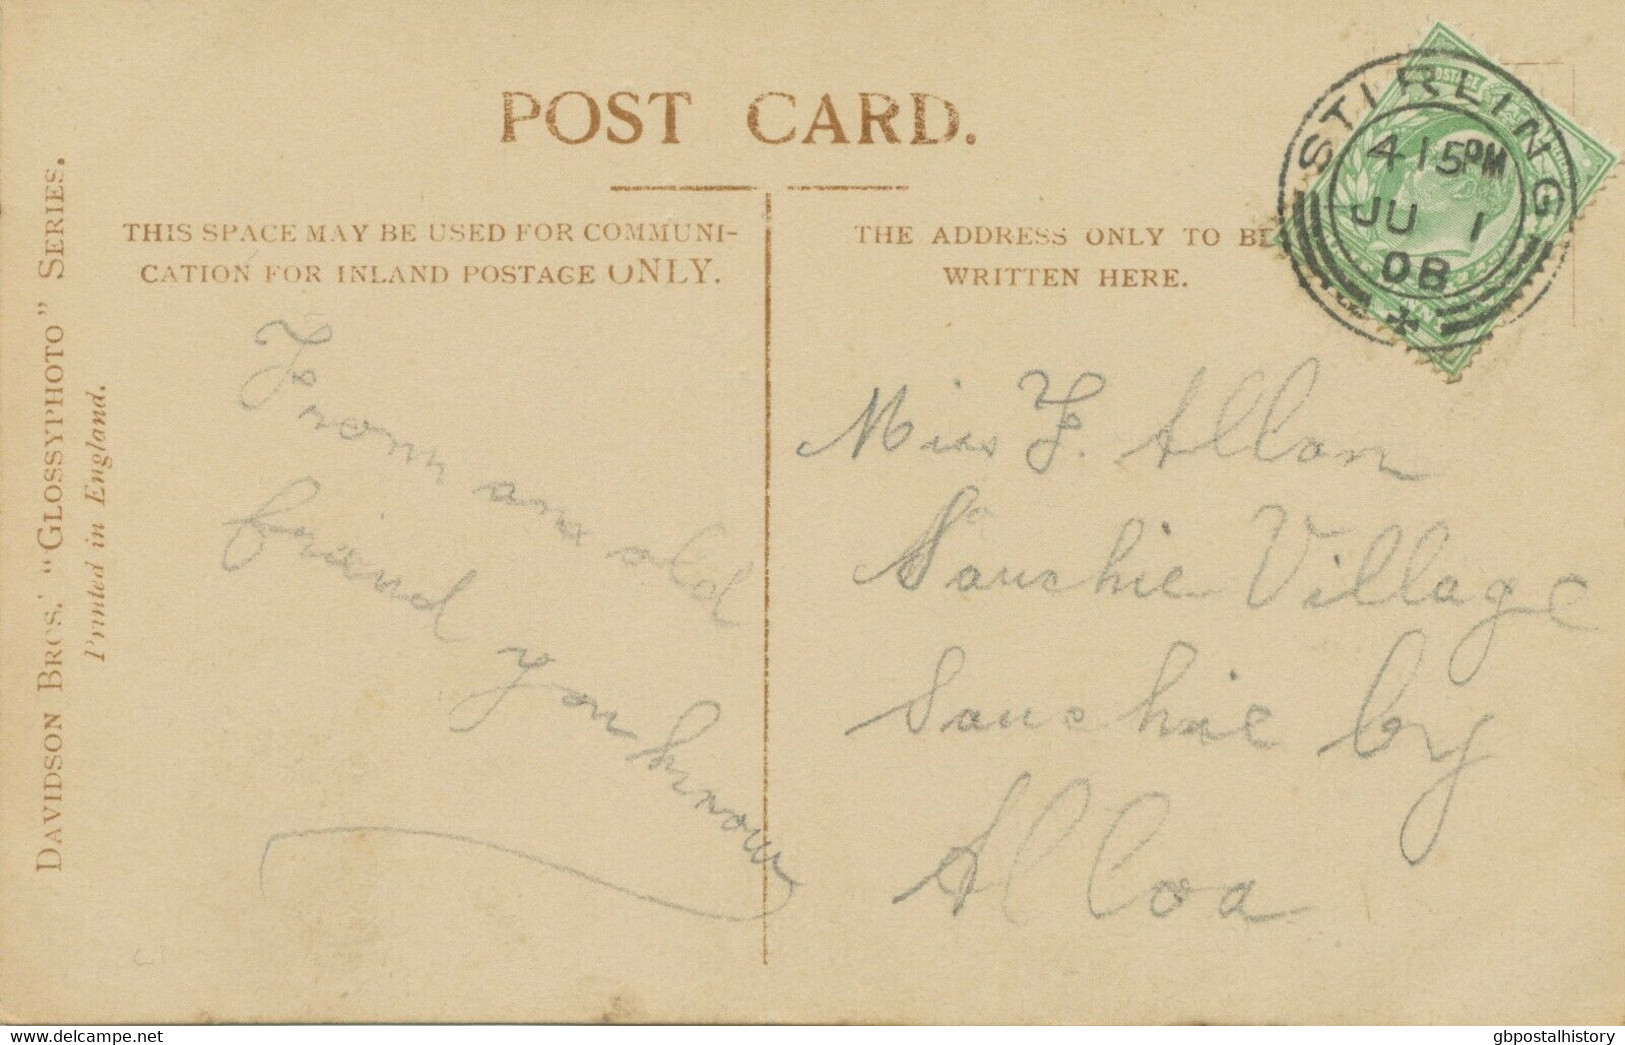 POST CARD.
THIS SPACE MAY BE USED FOR COMMUNI-
CATION FOR INLAND POSTAGE ONLY.
THE ADDRESS ONLY TO BE
WRITTEN HERE.
STIRLING
4 15 PM
JU 1
08
POSTAGE
DAVIDSON BROS.' "GLOSSYPHOTO" SERIES.
Printed in England.
From an old
friend you know
Miss F. Allan
Sauchie Village
Sauchie by
Alloa
delcampe.net
gbpostalhistory